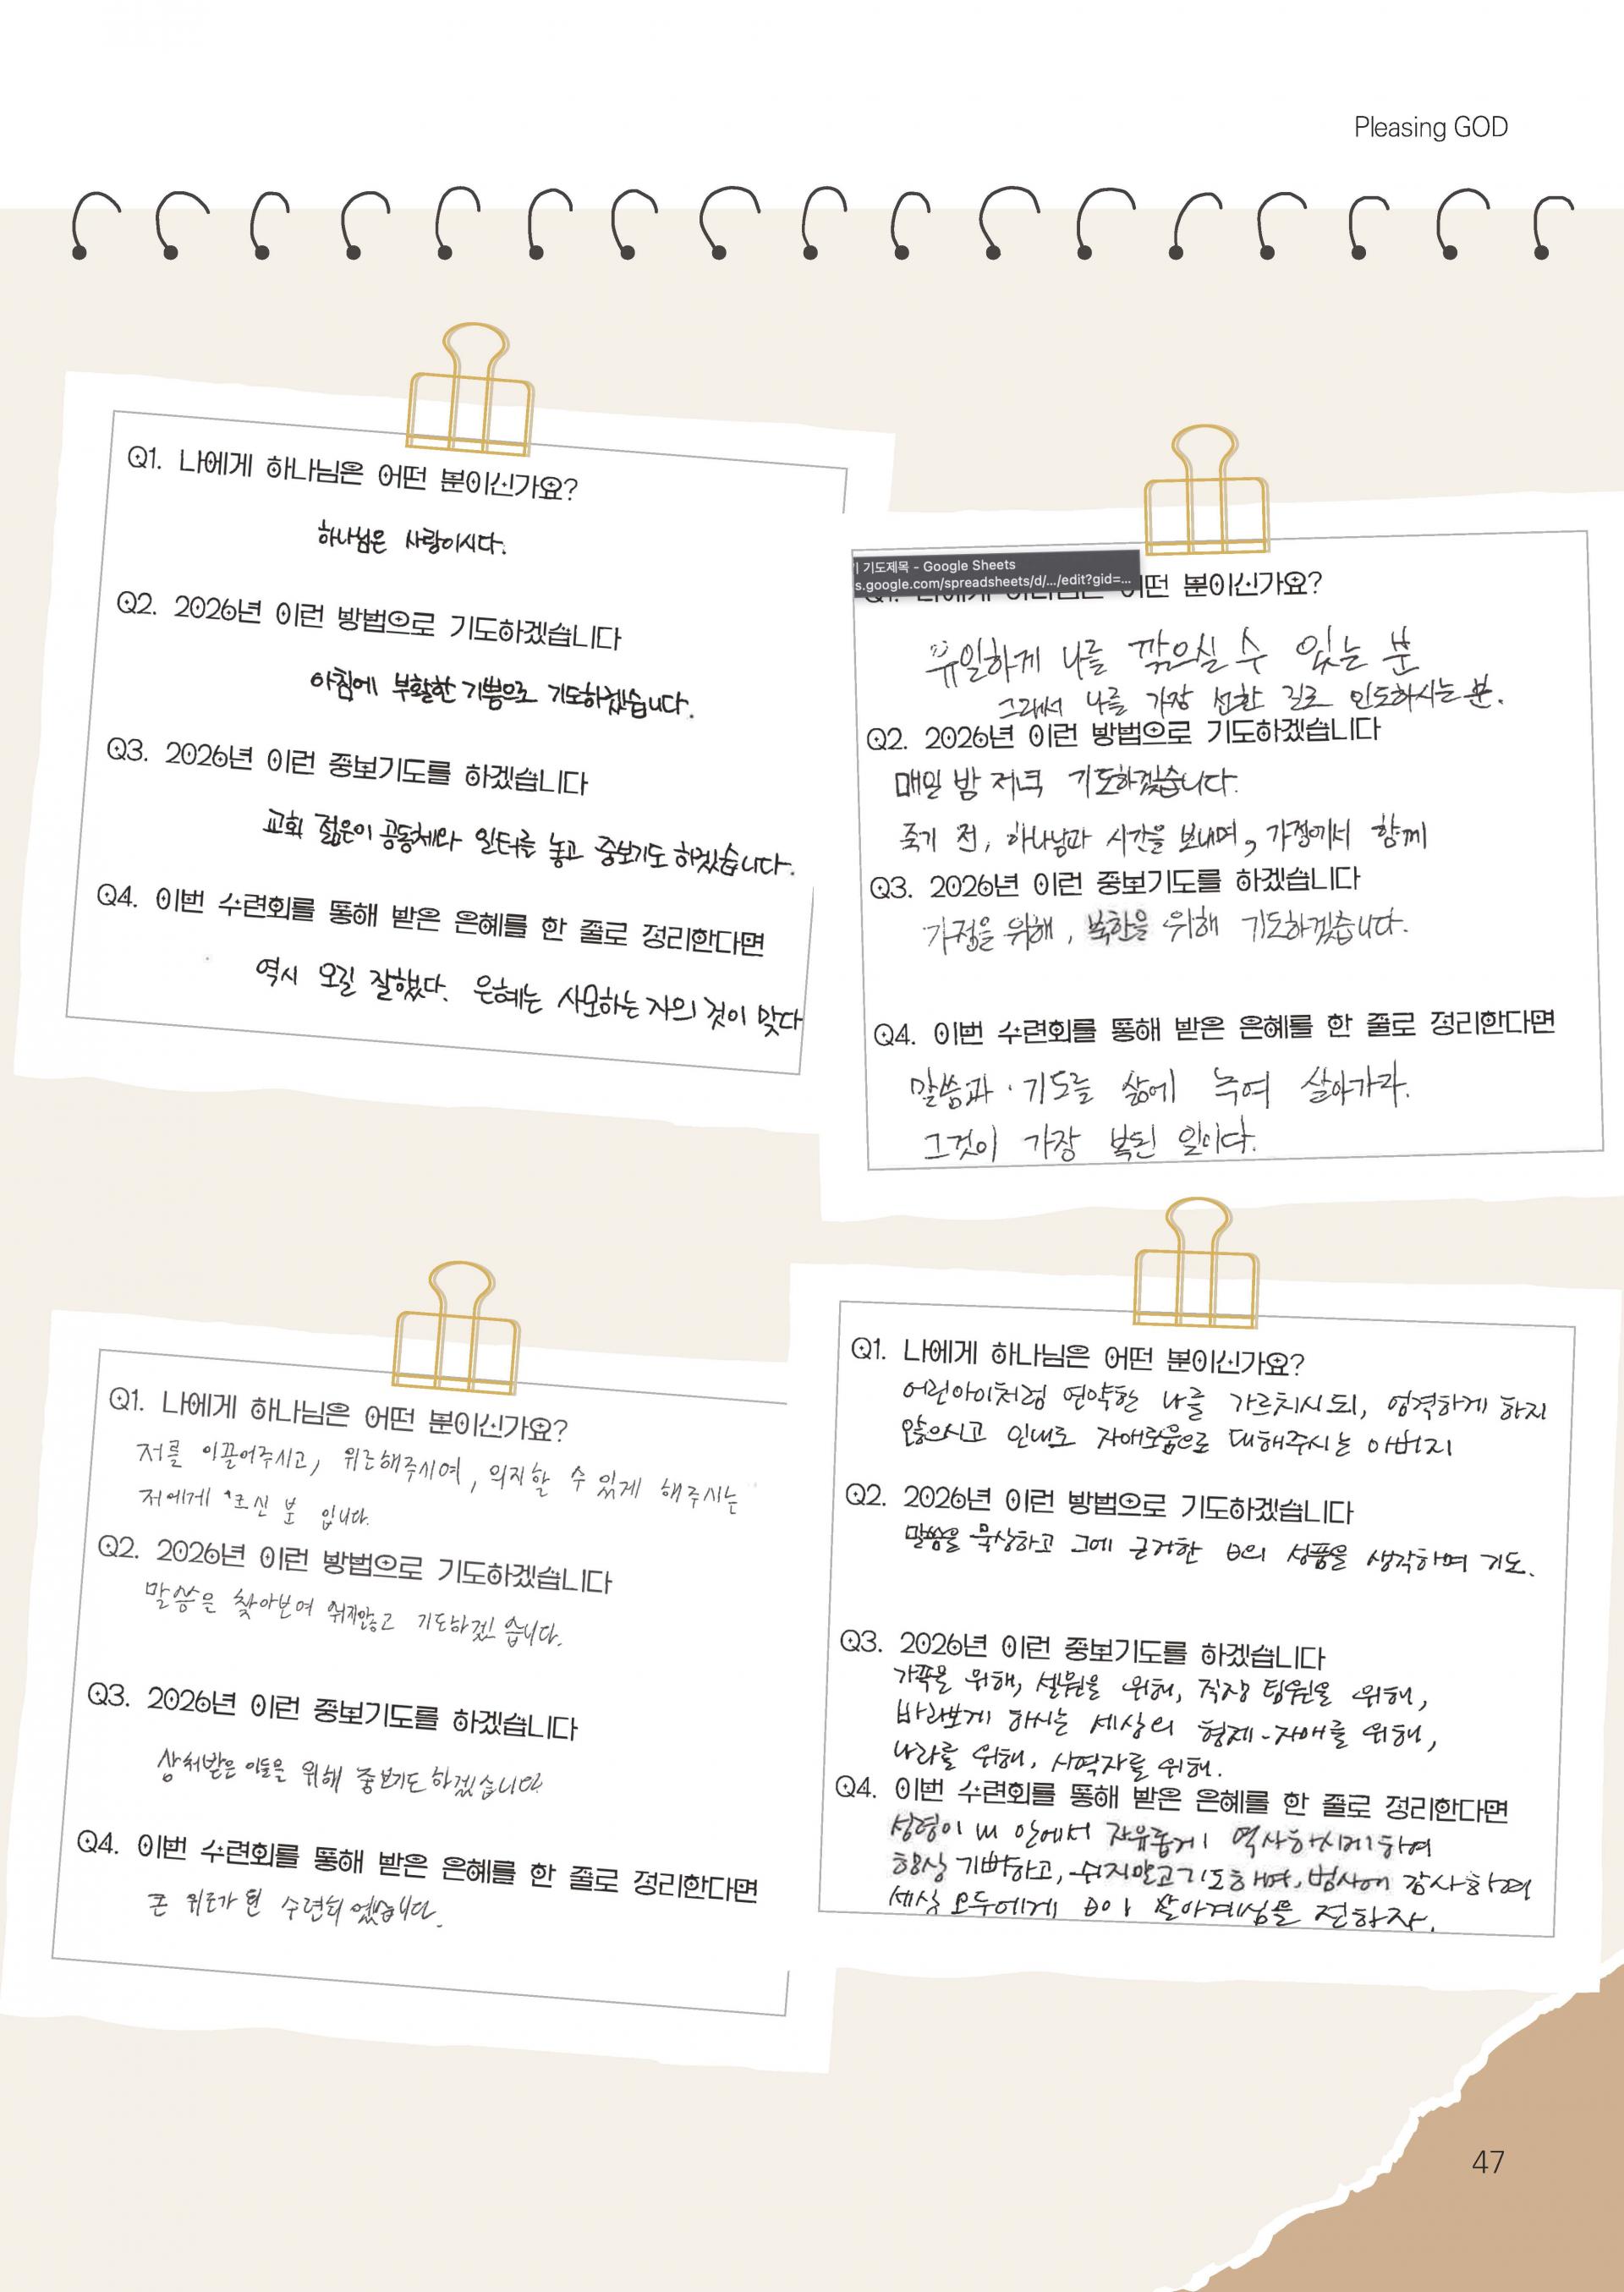 Pleasing GOD
Q1. 나에게 하나님은 어떤 분이신가요?
하나님은 사랑이시다.
Q2. 2026년 이런 방법으로 기도하겠습니다
아침에 부활한 기쁨으로 기도하겠습니다.
Q3. 2026년 이런 중보기도를 하겠습니다
교회 젊은이 공동체와 일터를 놓고 중보기도 하겠습니다.
Q4. 이번 수련회를 통해 받은 은혜를 한 줄로 정리한다면
역시 오길 잘했다. 은혜는 사모하는 자의 것이 맞다
기도제목 - Google Sheets
s.google.com/spreadsheets/d/.../edit?gid=...
어떤 분이신가요?
유일하게 나를 깎으실 수 있는 분
그래서 나를 가장 선한 길로 인도하시는 분.
Q2. 2026년 이런 방법으로 기도하겠습니다
매일 밤 저녁 기도하겠습니다.
죽기 전, 하나님과 시간을 보내며, 가정에서 함께
Q3. 2026년 이런 중보기도를 하겠습니다
가정을 위해, 북한을 위해 기도하겠습니다.
Q4. 이번 수련회를 통해 받은 은혜를 한 줄로 정리한다면
말씀과 · 기도를 삶에 녹여 살아가라.
그것이 가장 복된 일이다.
Q1. 나에게 하나님은 어떤 분이신가요?
저를 이끌어주시고, 위로해주시며, 의지할 수 있게 해주시는
저에게 신 분 입니다.
Q2. 2026년 이런 방법으로 기도하겠습니다
말씀을 찾아보며 쉬지않고 기도하겠습니다.
Q3. 2026년 이런 중보기도를 하겠습니다
상처받은 이들을 위해 중보기도 하겠습니다
Q4. 이번 수련회를 통해 받은 은혜를 한 줄로 정리한다면
큰 위로가 된 수련회 였습니다.
Q1. 나에게 하나님은 어떤 분이신가요?
어린아이처럼 연약한 나를 가르치시되, 엄격하게 하지
않으시고 인내로 자애로움으로 대해주시는 아버지
Q2. 2026년 이런 방법으로 기도하겠습니다
말씀을 묵상하고 그에 근거한 의 성품을 생각하며 기도.
Q3. 2026년 이런 중보기도를 하겠습니다
가족을 위해, 셀원을 위해, 직장 팀원을 위해,
바라보게 하시는 세상의 형제-자매를 위해,
나라를 위해, 사역자를 위해.
Q4. 이번 수련회를 통해 받은 은혜를 한 줄로 정리한다면
성령이 내 안에서 자유롭게 역사하시게 하여
항상 기뻐하고, 쉬지말고 기도하며, 범사에 감사하며
세상 모두에게 이 살아계심을 전하자.
47